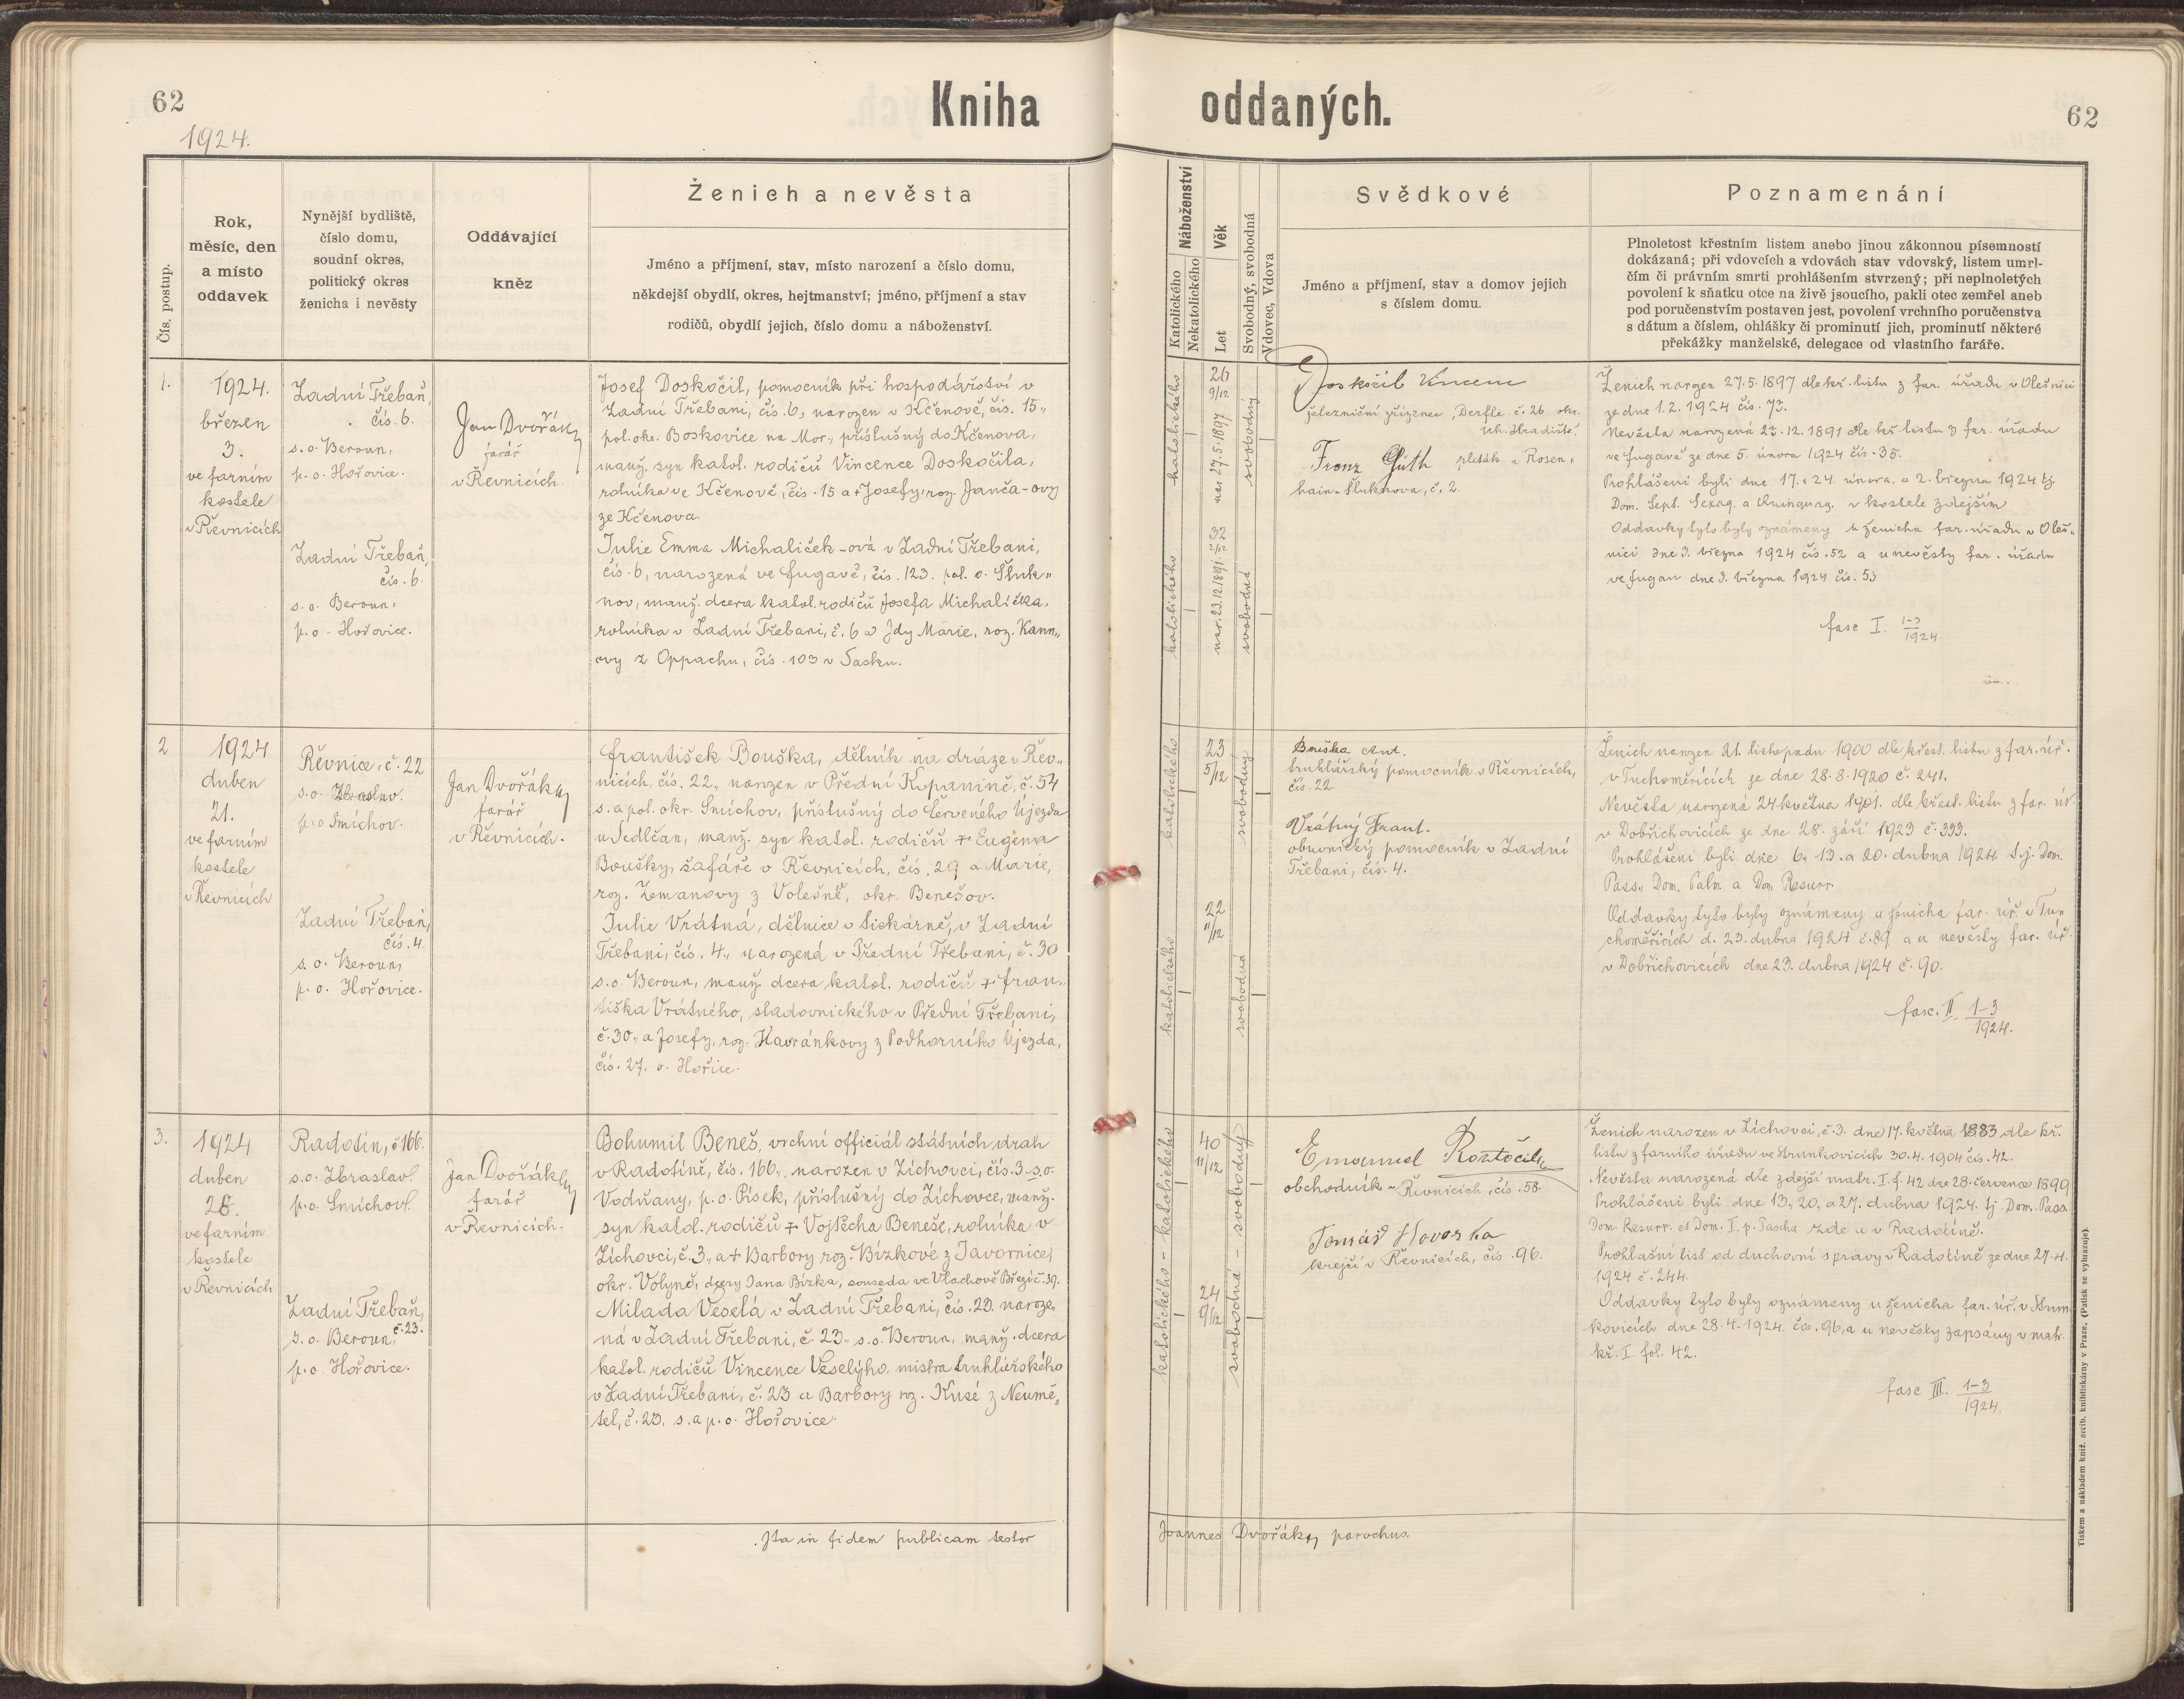 62
1924.
Kniha oddaných.
62
Čís. postup.
Rok,
měsíc, den
a místo
oddavek
Nynější bydliště,
číslo domu,
soudní okres,
politický okres
ženicha i nevěsty
Oddávající
kněz
Ženich a nevěsta
Jméno a příjmení, stav, místo narození a číslo domu,
někdejší obydlí, okres, hejtmanství; jméno, příjmení a stav
rodičů, obydlí jejich, číslo domu a náboženství.
Náboženství
Katolického
Nekatolického
Věk
Let
Svobodný, svobodná
Vdovec, Vdova
Svědkové
Jméno a příjmení, stav a domov jejich
s číslem domu.
Poznamenání
Plnoletost křestním listem anebo jinou zákonnou písemností
dokázaná; při vdovcích a vdovách stav vdovský, listem umrl-
čím či právním smrti prohlášením stvrzený; při neplnoletých
povolení k sňatku otce na živě jsoucího, pakli otec zemřel aneb
pod poručenstvím postaven jest, povolení vrchního poručenstva
s dátum a číslem, ohlášky či prominutí jich, prominutí některé
překážky manželské, delegace od vlastního faráře.
1.
1924.
březen
3.
ve farním
kostele
v Řevnicích
Zadní Třebaň,
čís. 6.
s. o. Beroun,
p. o. Hořovice.
Zadní Třebaň,
čís. 6.
s. o. Beroun,
p. o. Hořovice.
Jan Dvořák
farář
v Řevnicích
Josef Doskočil, pomocník při hospodářství v
Zadní Třebani, čís. 6, narozen v Kčenově, čís. 15
pol. okr. Boskovice na Mor., příslušný do Kčenova,
manž. syn katol. rodičů Vincence Doskočila,
rolníka ve Kčenově, čís. 15 a + Josefy, roz. Janča-ovy
ze Kčenova.
Julie Emma Michaliček-ová v Zadní Třebani,
čís. 6, narozená ve Fugavě, čís. 123. pol. o. Šluk-
nov, manž. dcera katol. rodičů Josefa Michalička,
rolníka v Zadní Třebani, č. 6 a Idy Marie, roz. Kann-
ovy z Oppachu, čís. 103 v Sasku.
katolického
katolického
26 9/12
nar. 27.5.1897
32 2/12
nar. 23.12.1891
svobodný
svobodná
Doskočil Vincenc
železniční zřízenec, Derfle č. 26 okr.
Uh. Hradiště.
Franz Güth pleták v Rosen-
hain-Šluknova, č. 2.
Ženich narozen 27.5.1897 dle kř. listu z far. úřadu v Olešnici
ze dne 1.2.1924 čís. 73.
Nevěsta narozená 23.12.1891 dle kř. listu z far. úřadu
ve Fugavě ze dne 5. února 1924 čís. 35.
Prohlášeni byli dne 17. a 24. února a 2. března 1924 tj.
Dom. Sept. Sexag. a Quinquag. v kostele zdejším
Oddavky tyto byly oznámeny u ženicha far. úřadu v Oleš-
nici dne 3. března 1924 čís. 52 a u nevěsty far. úřadu
ve Fugau dne 3. března 1924 čís. 53
fasc I. 1-3
1924
2
1924
duben
21.
ve farním
kostele
v Řevnicích
Řevnice, č. 22
s. o. Zbraslav.
p. o. Smíchov.
Zadní Třebaň,
čís. 4.
s. o. Beroun,
p. o. Hořovice.
Jan Dvořák
farář
v Řevnicích.
František Bouška, dělník na dráze v Řev-
nicích, čís. 22, narozen v Přední Kopanině, č. 54
s. a pol. okr. Smíchov, příslušný do Červeného Újezda
u Sedlčan, manž. syn katol. rodičů + Eugéna
Boušky, šafáře v Řevnicích, čís. 29 a Marie,
roz. Zemanovy z Volešně, okr. Benešov.
Julie Vrátná, dělnice v tiskárně, v Zadní
Třebani, čís. 4., narozená v Přední Třebani, č. 30
s. o. Beroun, manž. dcera katol. rodičů + Fran-
tiška Vrátného, sladovnického v Přední Třebani,
č. 30, a Josefy, roz. Havránkovy z Podhorního Újezda,
čís. 27. o. Hořice.
katolického
katolického
23 5/12
22 11/12
svobodný
svobodná
Bouška Ant.
truhlářský pomocník v Řevnicích,
čís. 22
Vrátný Frant.
obuvnický pomocník v Zadní
Třebani, čís. 4.
Ženich narozen 21. listopadu 1900 dle křest. listu z far. úř.
v Tuchoměřicích ze dne 28.8.1920 č. 241.
Nevěsta narozená 24 května 1901. dle křest. listu z far. úř.
v Dobřichovicích ze dne 28. září 1923 č. 393.
Prohlášeni byli dne 6. 13. a 20. dubna 1924 t. j. Dom.
Pass., Dom. Palm a Dom Resurr.
Oddavky tyto byly oznámeny u ženicha far. úř. v Tu-
choměřicích d. 23. dubna 1924 č. 89 a u nevěsty far. úř.
v Dobřichovicích dne 23. dubna 1924 č. 90.
fasc. II. 1-3
1924.
3.
1924
duben
28.
ve farním
kostele
v Řevnicích
Radotín, č 166.
s. o. Zbraslav.
p. o. Smíchov.
Zadní Třebaň,
č. 23.
s. o. Beroun,
p. o. Hořovice.
Jan Dvořák
farář
v Řevnicích.
Bohumil Beneš, vrchní officiál státních drah
v Radotíně, čís. 166, narozen v Žichovci, čís. 3. s. o.
Vodňany, p. o. Písek, příslušný do Žichovce, manž.
syn katol. rodičů + Vojtěcha Beneše, rolníka v
Žichovci, č. 3, a + Barbory roz. Bízkové z Javornice,
okr. Volyně, dcery Jana Bízka, souseda ve Vlachově Březí č. 39.
Milada Veselá v Zadní Třebani, čís. 23. naroze-
ná v Zadní Třebani, č. 23. s. o. Beroun, manž. dcera
katol. rodičů Vincence Veselýho, mistra truhlářského
v Zadní Třebani, č. 23 a Barbory roz. Kusé z Neumě-
tel, č. 23. s. a p. o. Hořovice.
katolického - katolického
40 11/12
24 9/12
svobodná - svobodný
Emanuel Roztočil
obchodník v Řevnicích, čís. 58.
Tomáš Hovorka
krejčí v Řevnicích, čís. 96.
Ženich narozen v Žichovci, č. 3. dne 17. května 1883 dle kř.
listu z farního úřadu ve Strunkovicích 30.4.1904 čís. 42.
Nevěsta narozená dle zdejší matr. I. f. 42 dne 28. července 1899
Prohlášeni byli dne 13, 20, a 27. dubna 1924. tj. Dom. Pass.
Dom. Resurr. et Dom. I. p. Pascha zde a v Radotíně.
Prohlašní list od duchovní správy v Radotíně ze dne 27.4.
1924 č. 244.
Oddavky tyto byly oznámeny u ženicha far. úř. v Strun-
kovicích dne 28.4.1924. čís. 96, a u nevěsty zapsány v matr.
kř. I. fol. 42.
fasc III. 1-3
1924.
Ita in fidem publicam testor
Joannes Dvořák, parochus.
Tiskem a nákladem kníž. arcib. knihtiskárny v Praze. (Patisk se vyhrazuje).